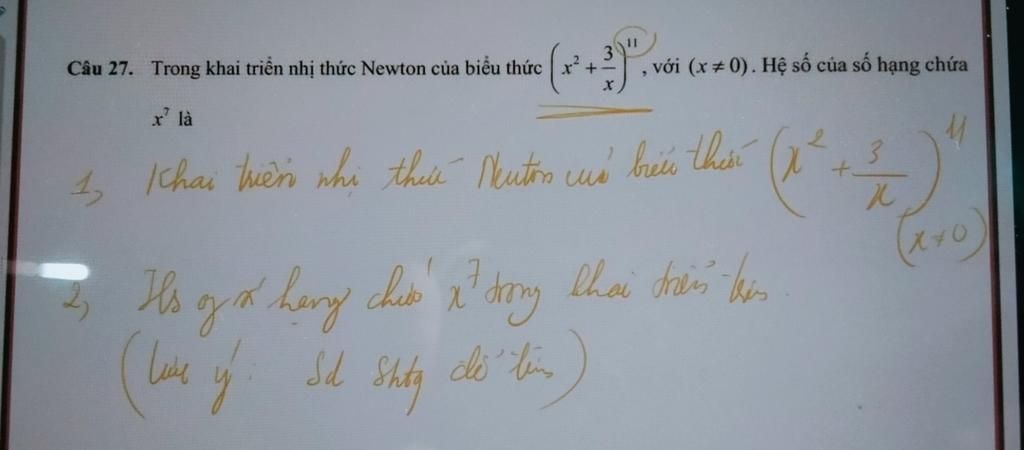 Câu 27. Trong khai triển nhị thức Newton của biểu thức (x² + 3/x)¹¹, với (x ≠ 0). Hệ số của số hạng chứa
x⁷ là
1, Khai triển nhị thức Neuton của biểu thức (x² + 3/x)¹¹
(x ≠ 0)
2, Hs of số hạng chứa x⁷ trong khai triển trên.
(lưu ý: Sd Shtq để tìm)